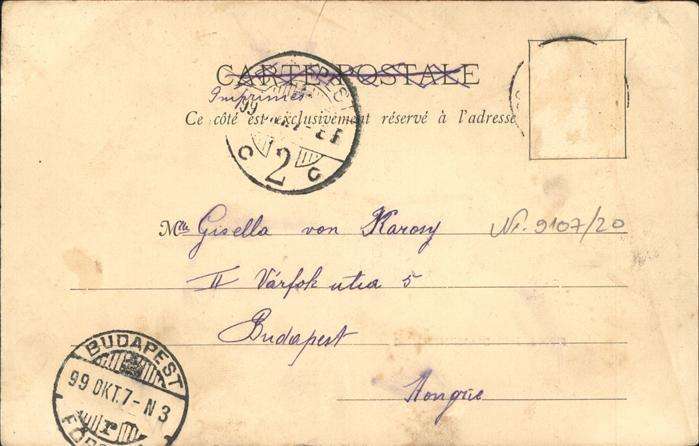 CARTE POSTALE
Imprimés
Ce côté est exclusivement réservé à l'adresse
2
Mlle Gisella von Karosy Nr. 9107/20
II Várfok utca 5
Budapest
Hongrie
BUDAPEST
99 OKT. 7 - N 3